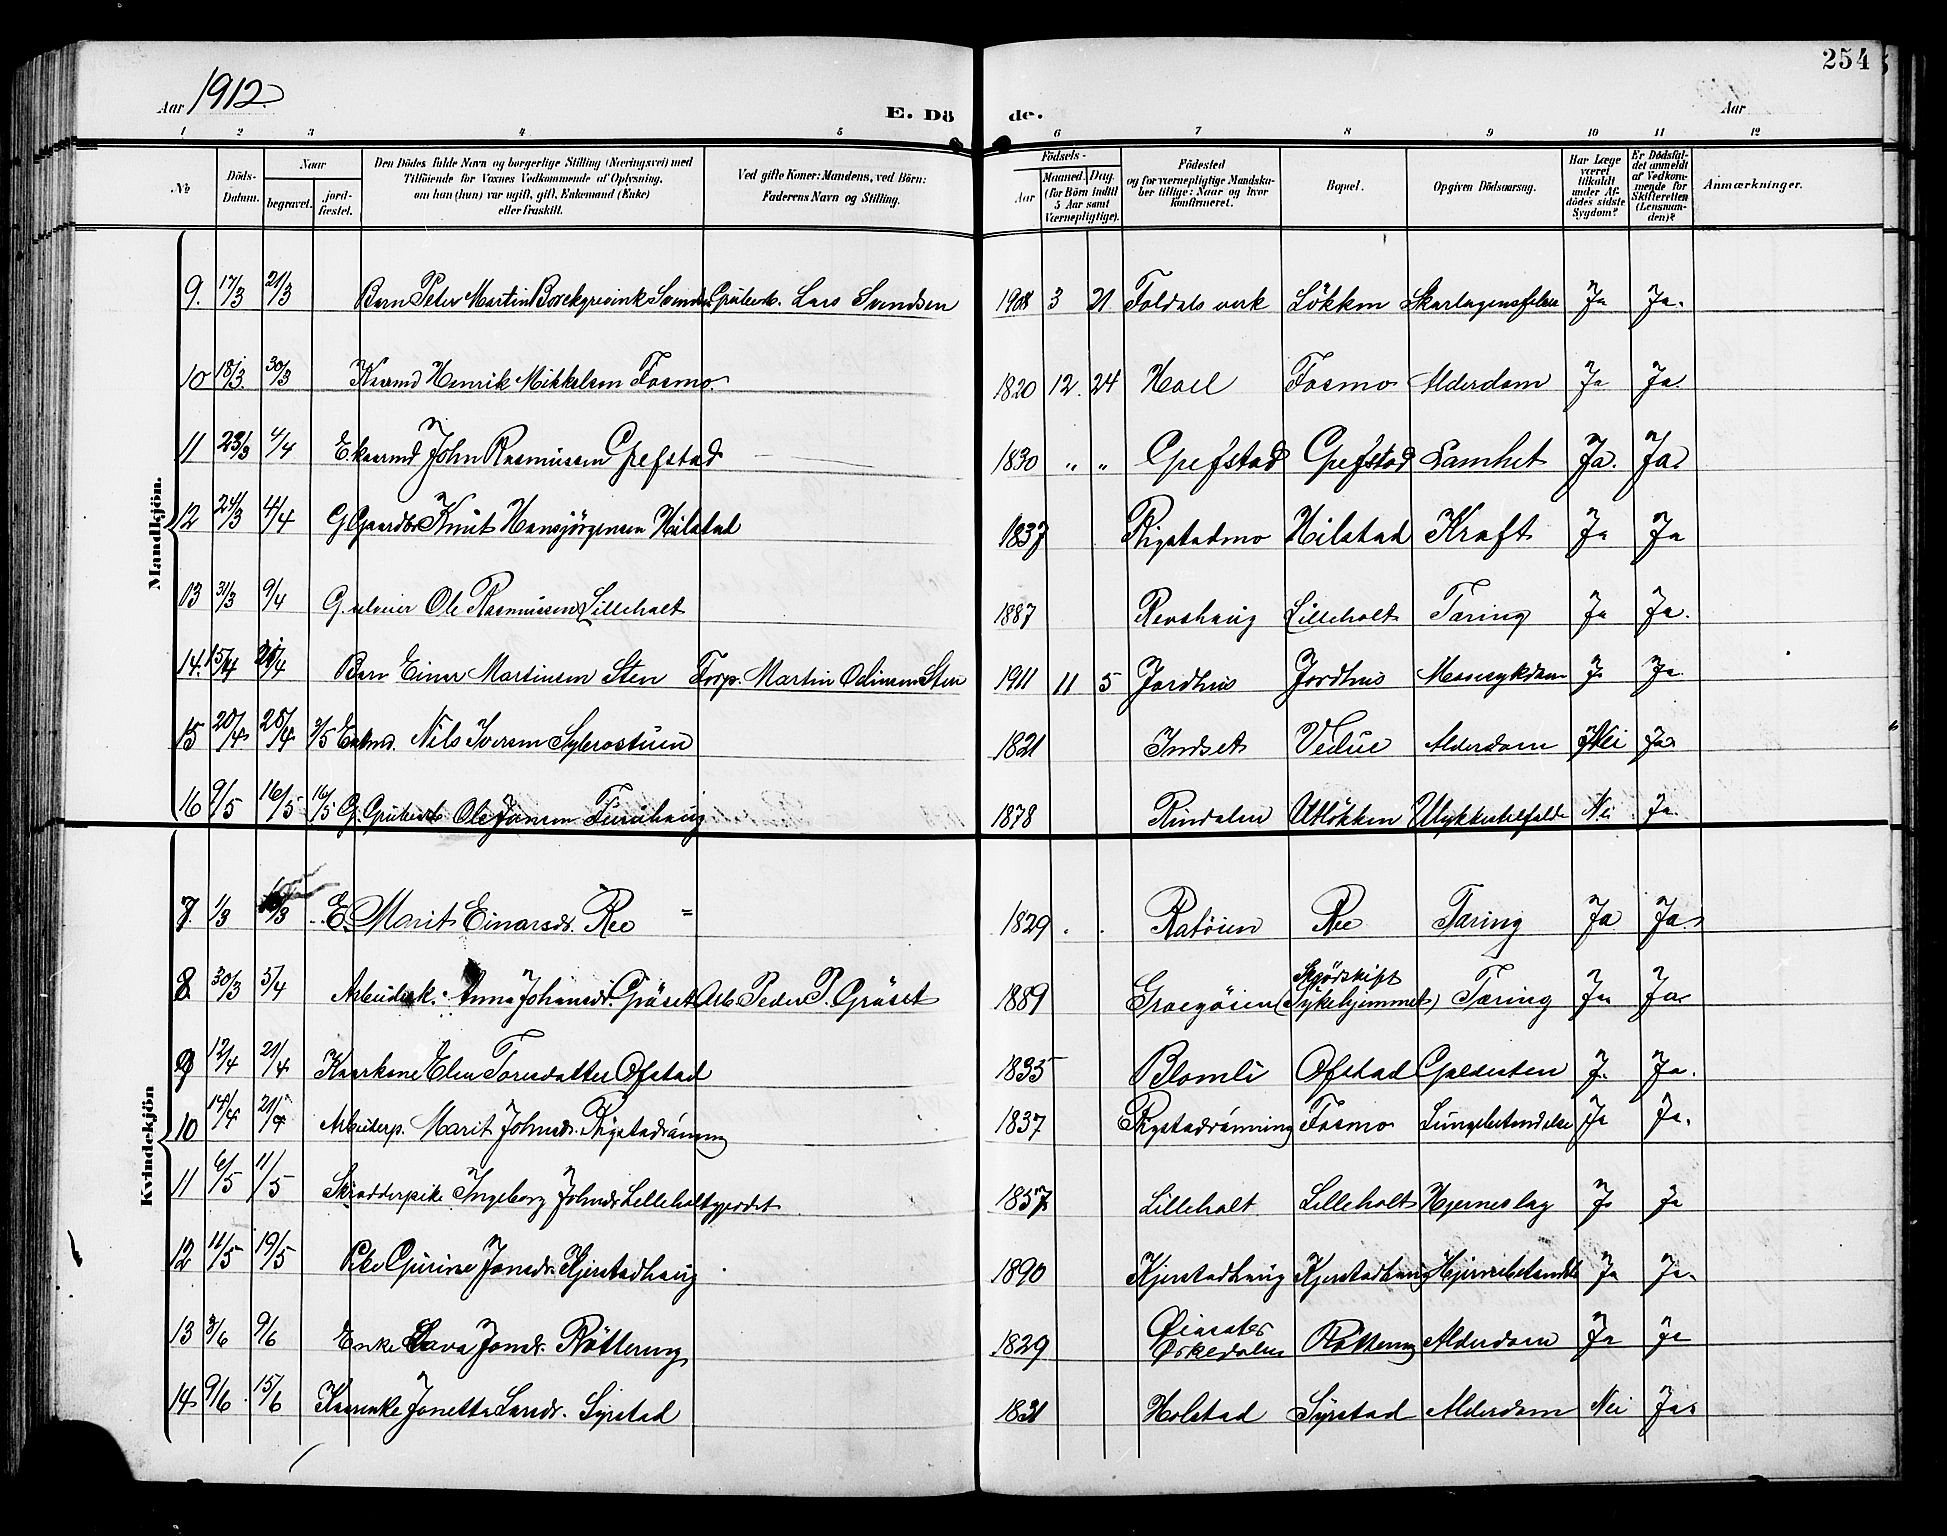 254
Aar 1912.
E. Dö de.
Aar
1 2 3 4 5 6 7 8 9 10 11 12
No
Döds-Datum.
Naar
begravet.
jord-fæstet.
Den Dödes fulde Navn og borgerlige Stilling (Næringsvei) med
Tilföiende for Voxnes Vedkommende af Oplysning,
om hun (hun) var ugift, gift, Enkemand (Enke)
eller fraskilt.
Ved gifte Koner: Mandens, ved Börn:
Faderens Navn og Stilling.
Födsels-
Aar
Maaned. Dag.
(for Börn indtil
5 Aar samt
Værnepligtige).
Födested
og for værnepligtige Mandska-
ber tillige: Naar og hvor
konfirmeret.
Bopæl.
Opgiven Dödsaarsag.
Har Læge
været
tilkaldt
under Af-
dödes sidste
Sygdom?
Er Dödsfal-
det anmeldt
af Vedkom-
mende for
Skifteretten
(Lensman-
den)?
Anmærkninger.
Mandkjön.
9. 17/3 21/3 Barn Peter Martin Svendsen Grubearb. Lars Svendsen 1908 3 21 Foldals verk Lökken Skarlagensfeber Ja Ja.
10 18/3 30/3 Kaarmd Henrik Mikkelsen Fosmo. 1820 12. 24 Hoel Fosmo Alderdom Ja Ja.
11 23/3 4/4 E. kaarmd John Rasmussen Grefstad 1830 „ „ Grefstad Grefstad Lamhet Ja. Ja.
12 24/3 4/4 G. Gaardbr. Knut Hansjørgensen Hilstad 1837 Rigstadmo Hilstad Kraft Ja Ja
13 31/3 9/4 G. Ole Rasmussen Lilleholt 1887 Revshaug Lilleholt Tæring Ja Ja.
14. 15/4 21/4 Barn Einar Martinsen Sten Forp. Martin Odinsen Sten 1911 11 5 Jordhus Jordhus Ja Ja.
15 20/4 25/4 3/5 Enkmd. Nils Iversen 1821 Indset Alderdom Nei Ja.
16 9/5 16/5 16/5 G. Grubearb. Ole Jonsen Furuhaug 1878 Rindalen Utløkken Ulykkestilfælde Nei Ja.
Kvindekjön
7. 1/3 /3 E. Marit Einarsdr. Ree 1829 . . Ratöien Ree Tæring Ja Ja.
8. 30/3 5/4 Arbeidersk. Anna Johansdr. Gråset Arb. Peder P. Gråset 1889 Sykehjemmet) Tæring Ja Ja.
9 12/4 21/4 Kaarkone Elen Toresdatter Ofstad 1835 Blomli Ofstad Galdesten Ja. Ja.
10 14/4 21/4 Arbeiderp. Marit Johnsdr. Rigstadrønning 1837 Rigstadrønning Fosmo Lungebetændelse Ja Ja.
11 6/5 11/5 Skrædderpike Ingeborg Johnsdr. Lilleholtgjerdet 1857 Lilleholt Lilleholt Hjerneslag Ja Ja
12 11/5 19/5 Pike Gurine Jonsdr. Kjerstadhaug 1890 Kjerstadhaug Kjerstadhaug Ja Ja.
13 3/6 9/6 Enke Jonsdr. Röttereng 1829 Orkedalen Röttereng Alderdom Ja Ja
14 9/6 15/6 Kaarenke Jonetta Larsdr. Syrstad 1831 Holstad Syrstad Alderdom Nei Ja.